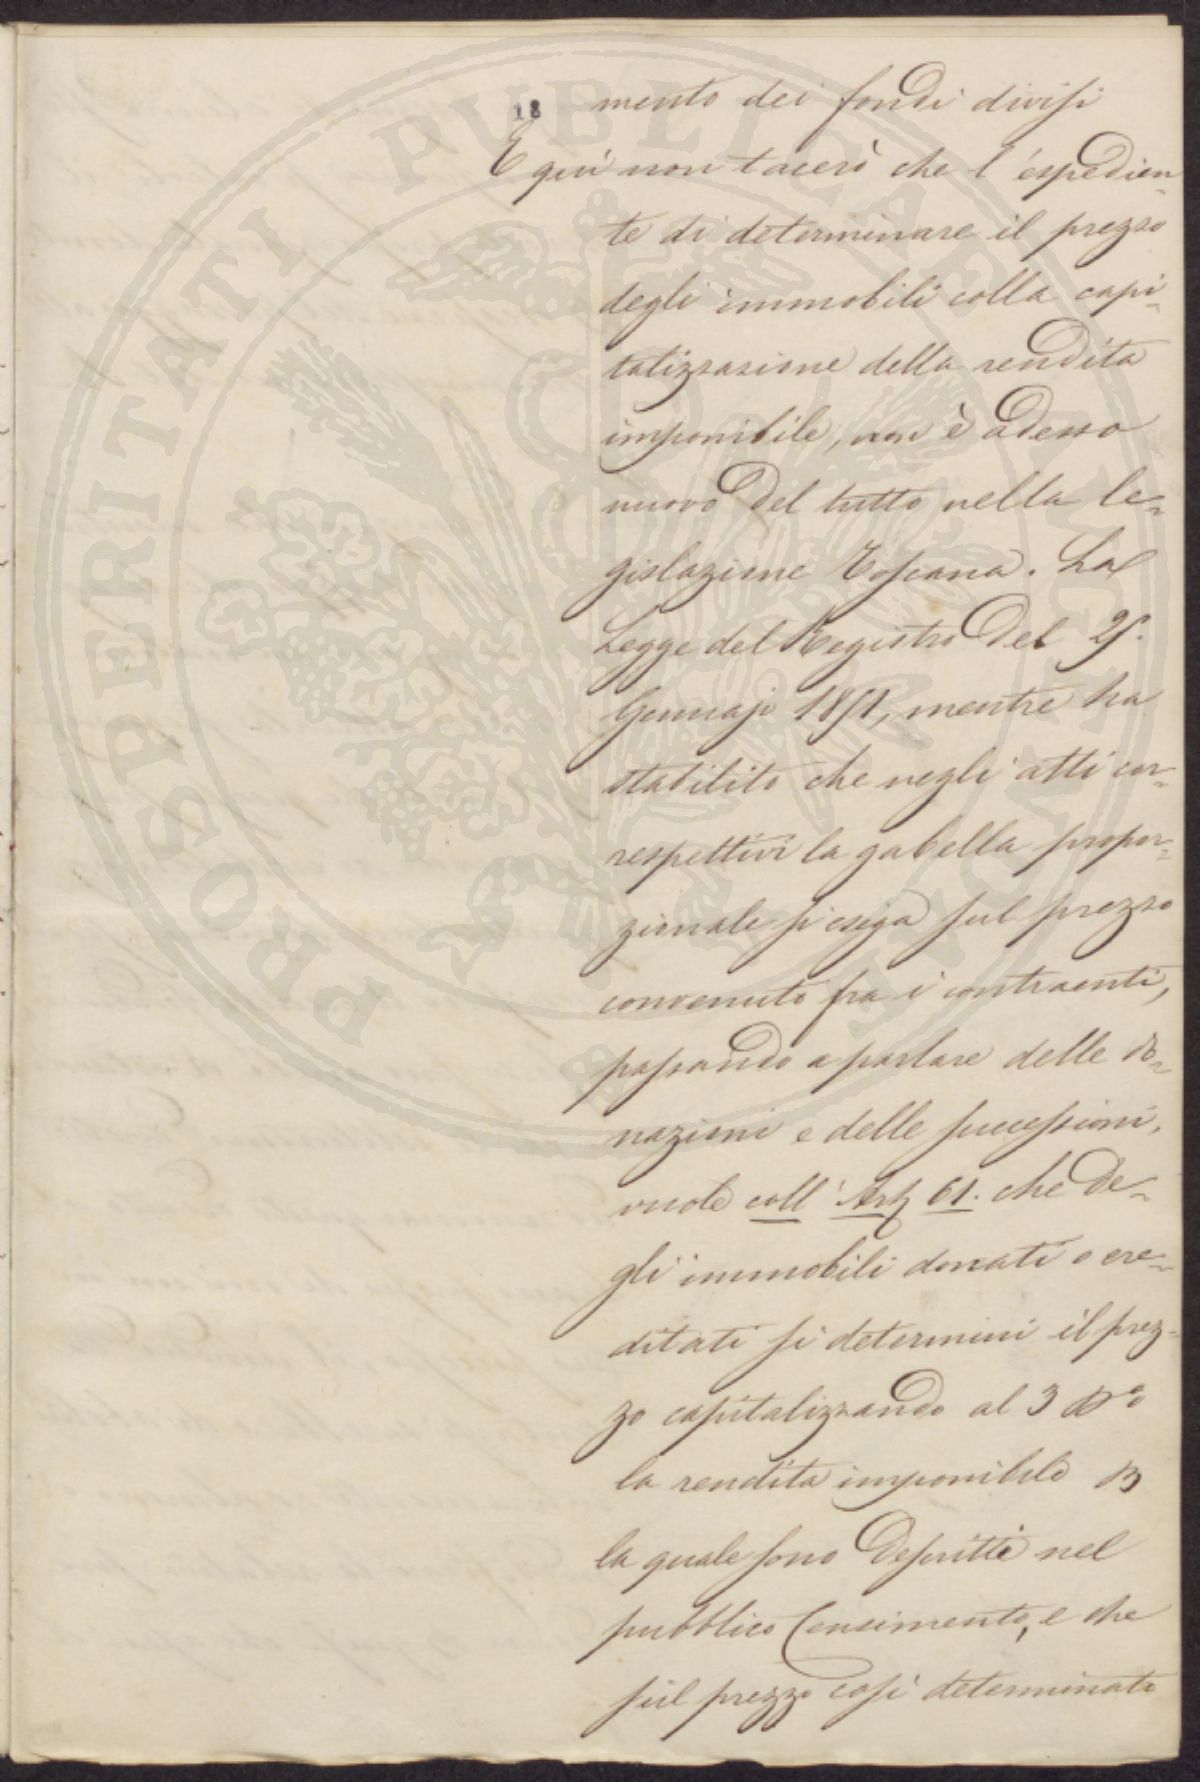 18
mento dei fondi divisi
E qui non tacerò che l'espedien-
te di determinare il prezzo
degli immobili colla capi-
talizzazione della rendita
imponibile, non è adesso
nuovo del tutto nella le-
gislazione Toscana. La
Legge del Registro del 25.
Gennajo 1851, mentre ha
stabilito che negli atti cor-
respettivi la gabella propor-
zionale si esiga sul prezzo
convenuto fra i contraenti,
passando a parlare delle do-
nazioni e delle successioni,
vuole coll' Art. 61. che de-
gli immobili donati o ere-
ditati si determini il prez-
zo capitalizzando al 3
la rendita imponibile
la quale sono descritti nel
pubblico Censimento, e che
sul prezzo così determinato
PROSPERITATI PUBLICAE